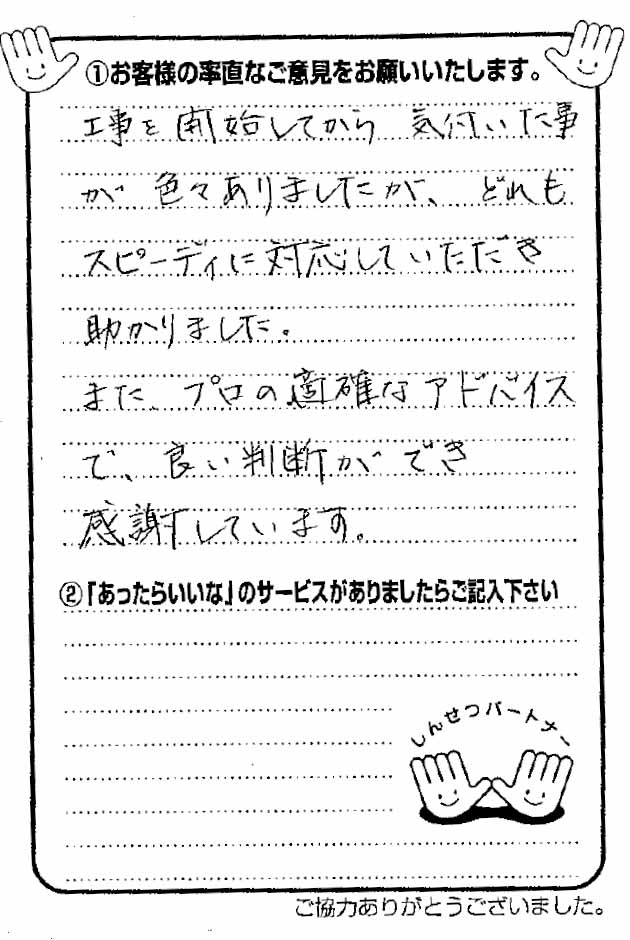 ①お客様の率直なご意見をお願いいたします。
工事を開始してから 気付いた事
が 色々ありましたが、どれも
スピーディに対応していただき
助かりました。
また、プロの適確なアドバイス
で、良い判断ができ
感謝しています。
②「あったらいいな」のサービスがありましたらご記入下さい
しんせつパートナー
ご協力ありがとうございました。